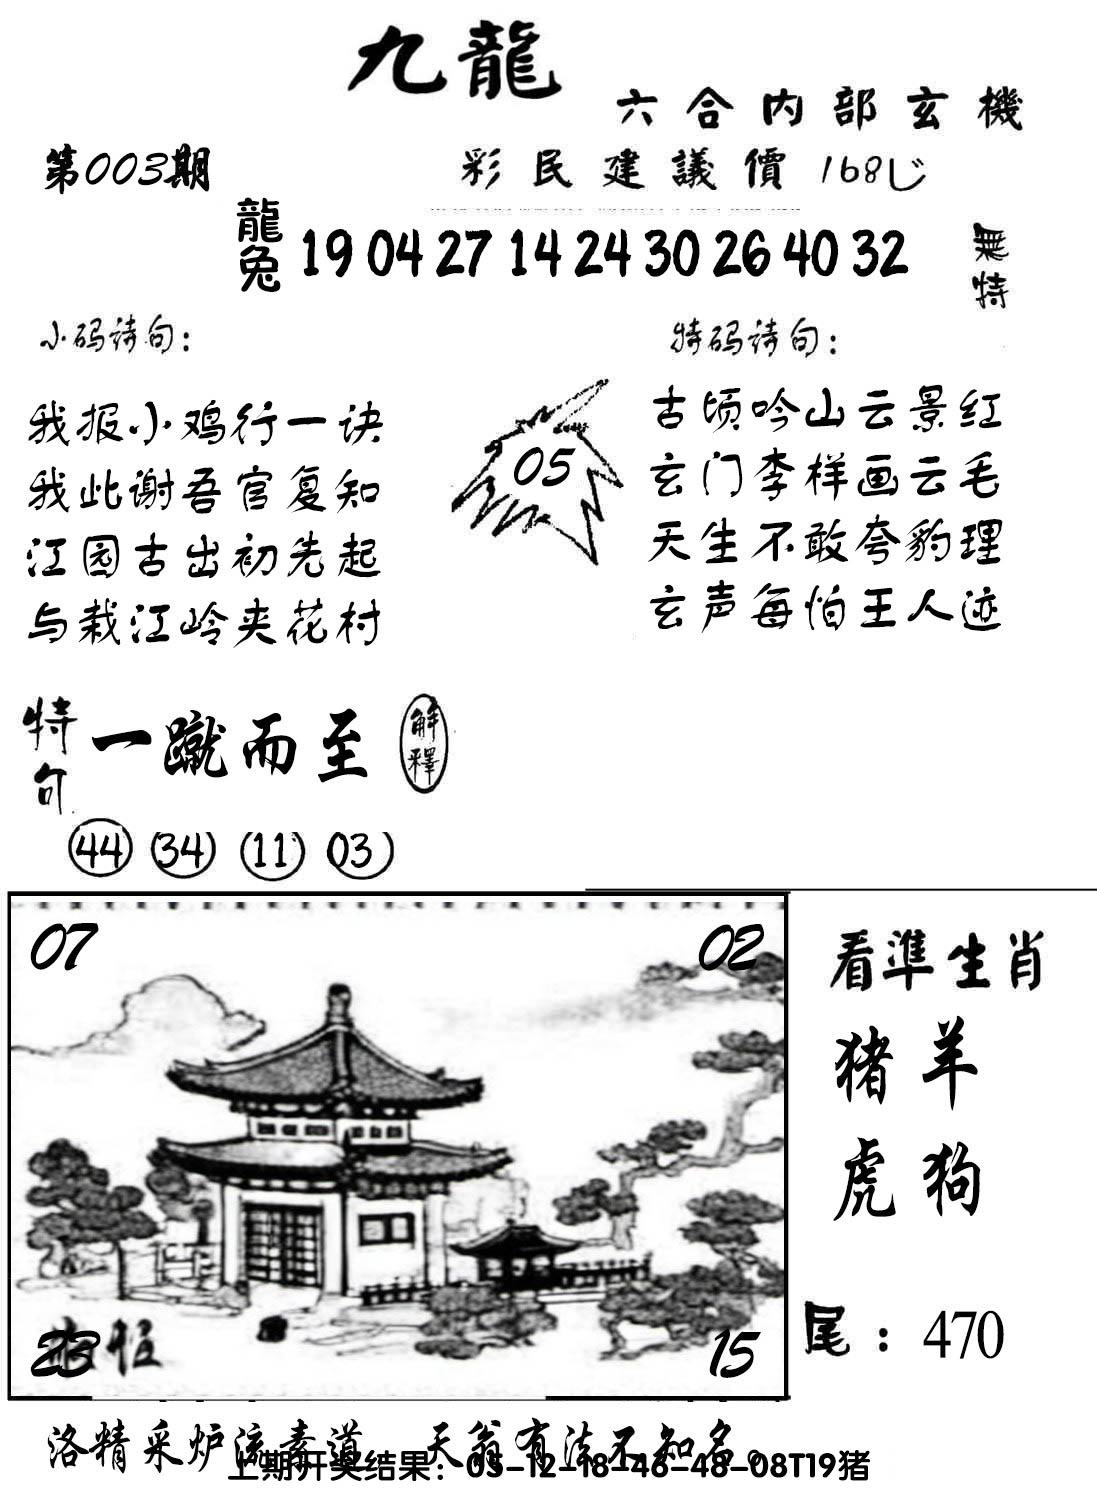 九龍
六合内部玄機
第003期
彩民建議價 168
龍兔 19 04 27 14 24 30 26 40 32
無特
小码诗句：
我报小鸡行一诀
我此谢吾官复知
江园古出初先起
与栽江岭夹花村
05
特码诗句：
古顷吟山云景红
玄门李样画云毛
天生不敢夸豹理
玄声每怕王人迹
特句 一蹴而至 解釋
44 34 11 03
07 02
23 15
看準生肖
猪羊
虎狗
尾：470
洛精采炉流素道 天翁有法不知名。
上期开奖结果：05-12-18-46-48-08T19猪